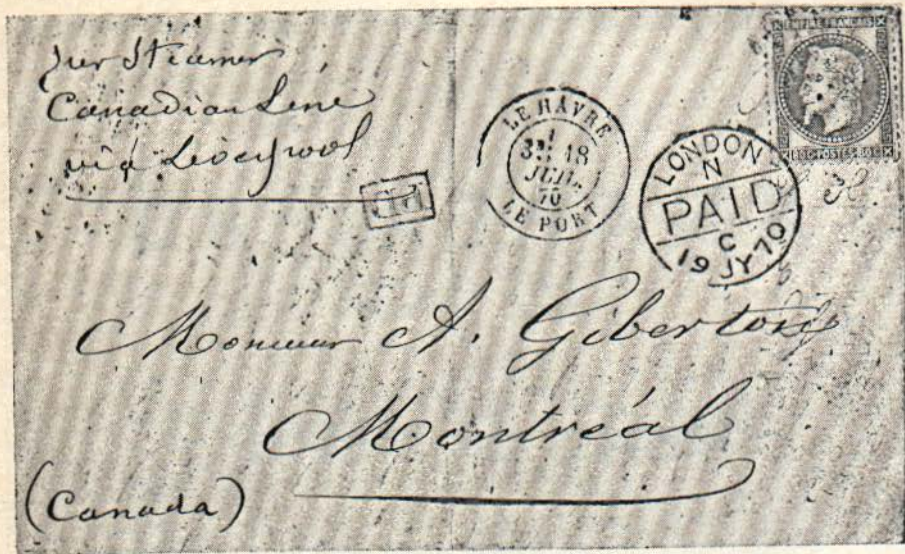 per Steamer
Canadian Line
via Liverpool
PD
LE HÂVRE
18
JUIL.
70
LE PORT
LONDON
N
PAID
C
19 JY 70
EMPIRE FRANÇAIS
80C·POSTES·80C
Monsieur A. Giberton
Montréal
(Canada)